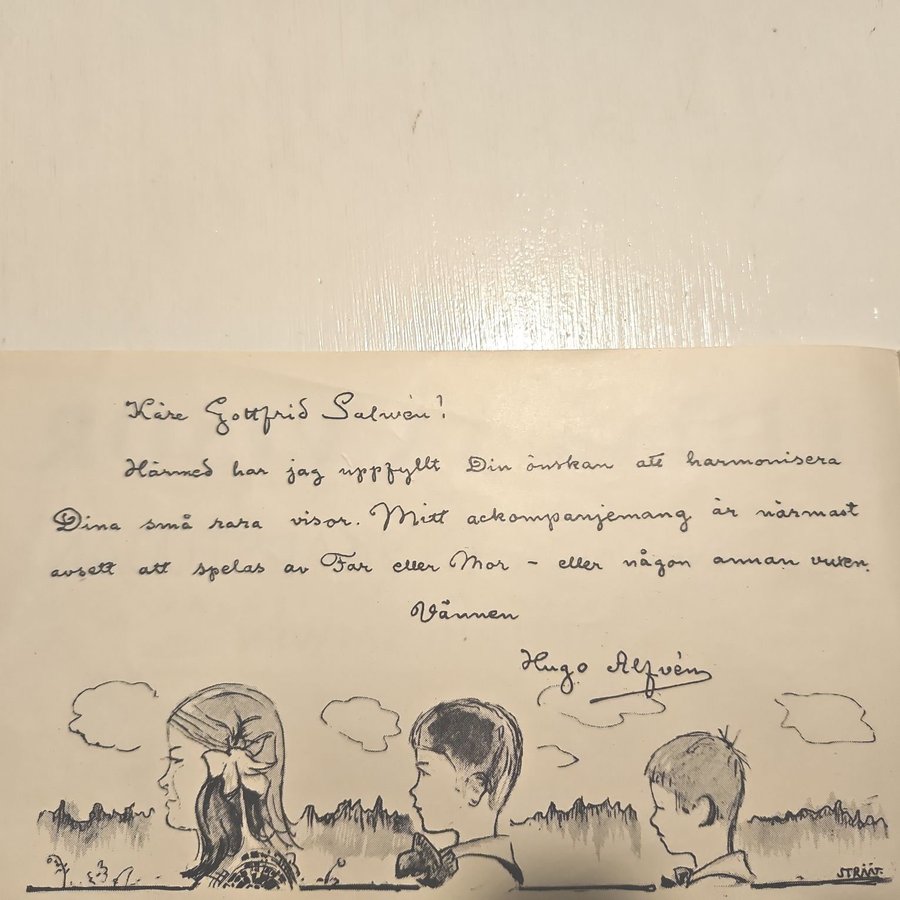 Käre Gottfrid Salwén!
Härmed har jag uppfyllt Din önskan att harmonisera
Dina små rara visor. Mitt ackompanjemang är närmast
avsett att spelas av Far eller Mor – eller någon annan vuxen.
Vännen
Hugo Alfvén
STRÄÄT.